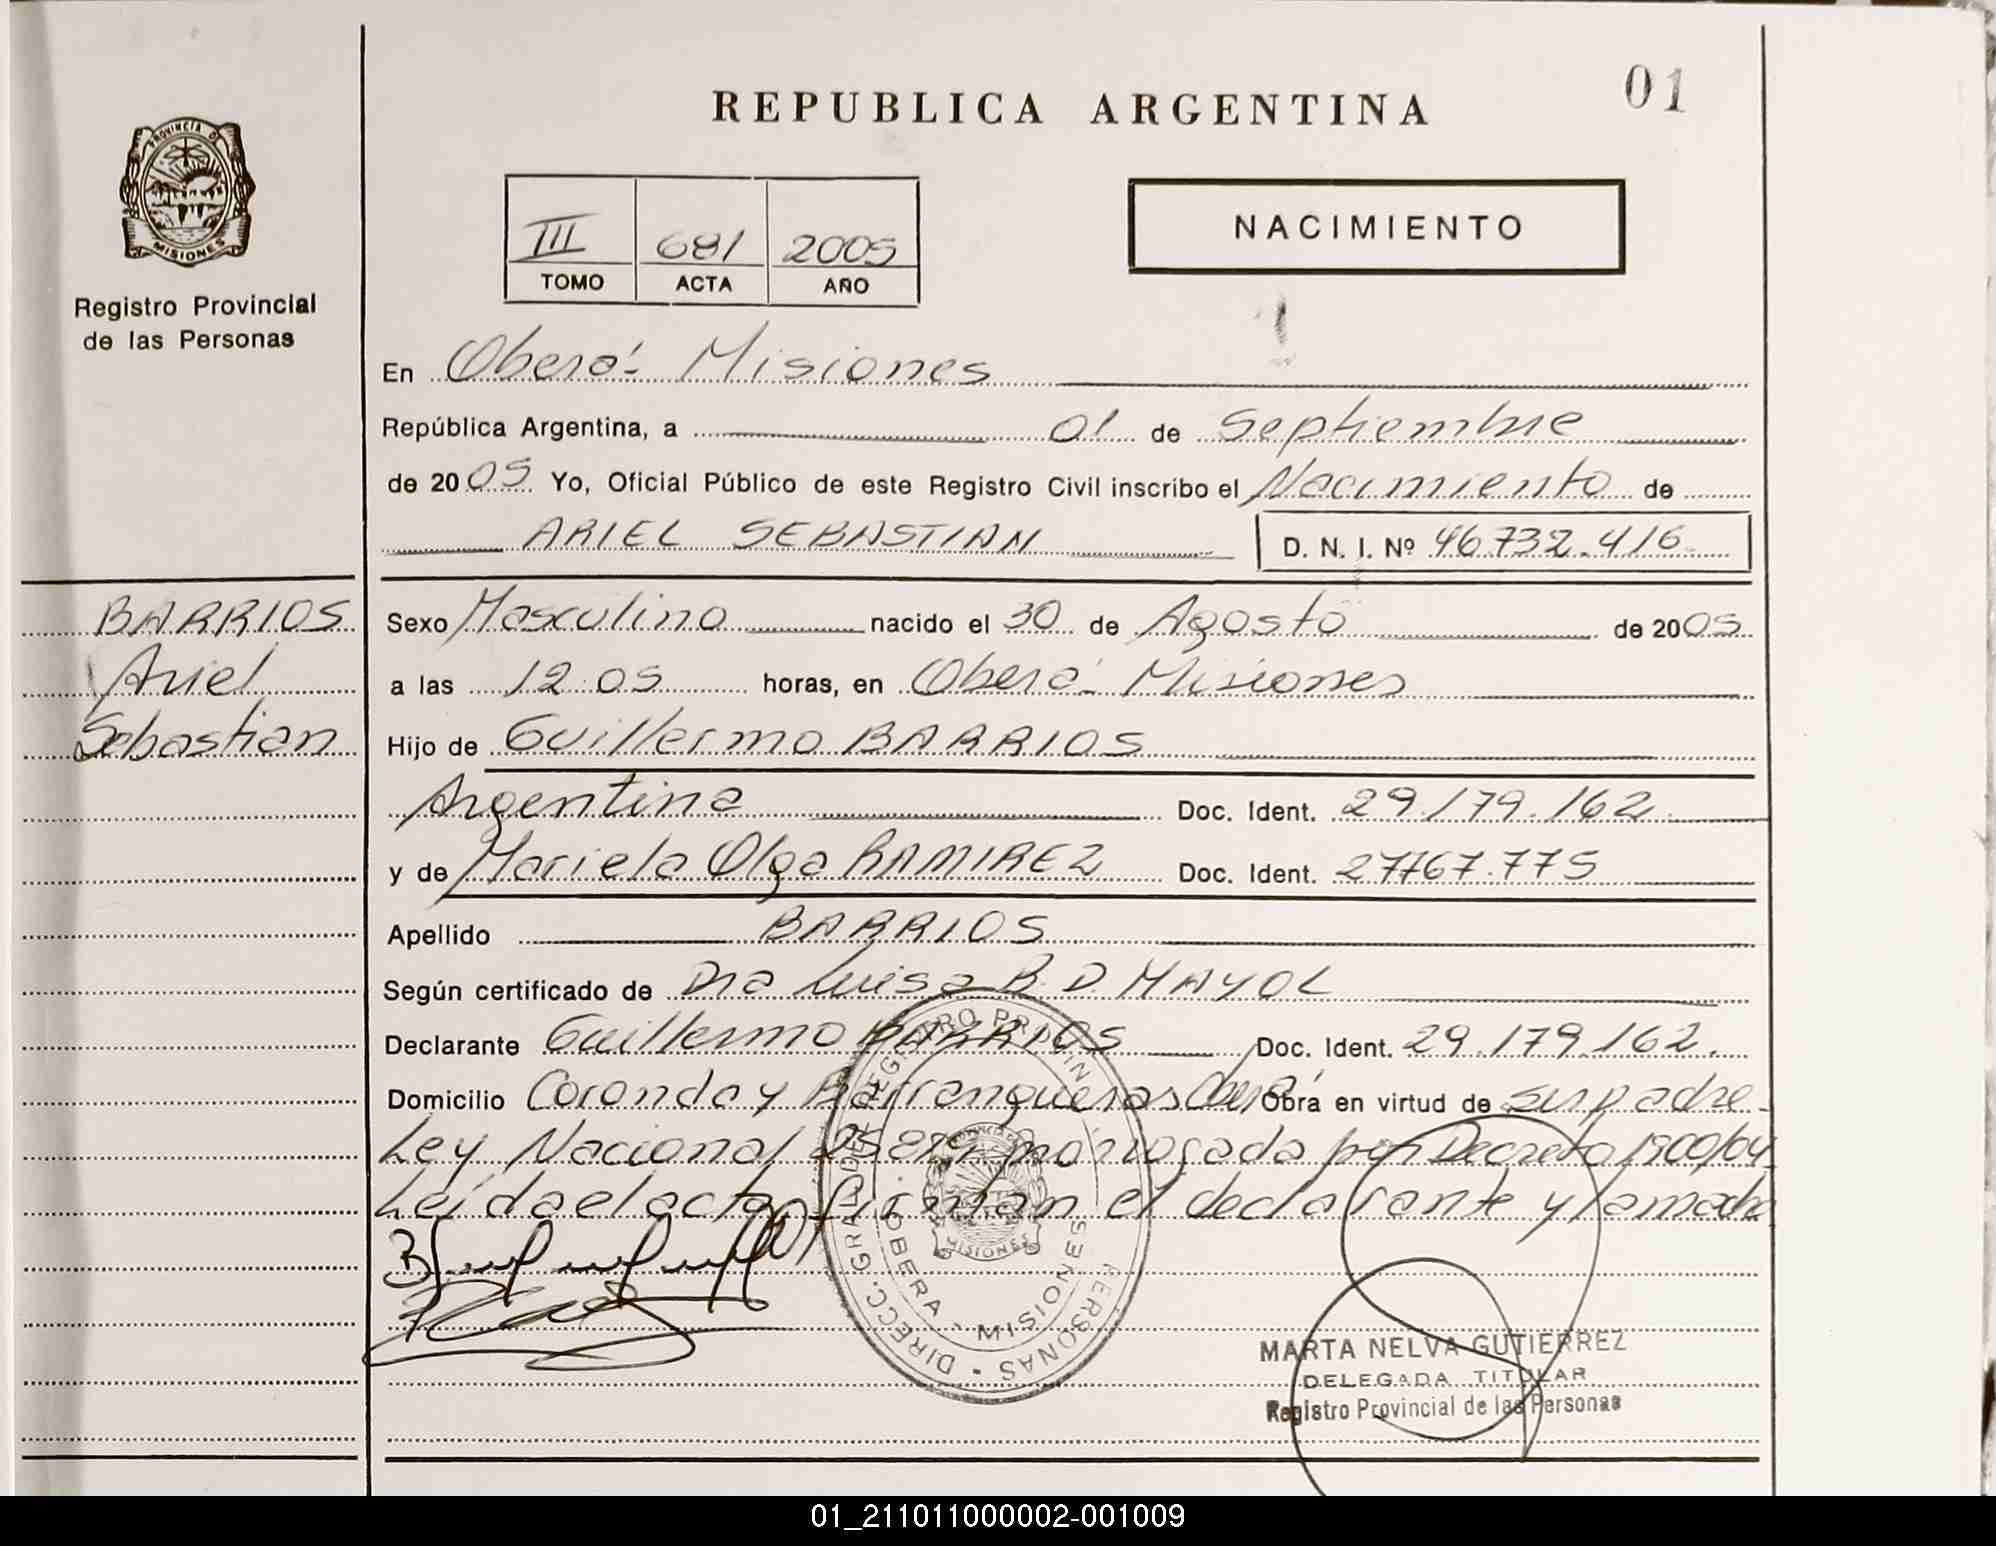 REPUBLICA ARGENTINA
01
PROVINCIA DE
MISIONES
Registro Provincial
de las Personas
III 681 2005
TOMO ACTA AÑO
NACIMIENTO
En Oberá- Misiones
República Argentina, a 01 de Septiembre
de 2005 Yo, Oficial Público de este Registro Civil inscribo el Nacimiento de
ARIEL SEBASTIAN D. N. I. Nº 46.732.416
BARRIOS
Ariel
Sebastian
Sexo Masculino nacido el 30 de Agosto de 2005
a las 12:05 horas, en Oberá- Misiones
Hijo de Guillermo BARRIOS
Argentina Doc. Ident. 29.179.162
y de Mariela Olga RAMIREZ Doc. Ident. 27.767.775
Apellido BARRIOS
Según certificado de Dra Luisa R. D. MAYOL
Declarante Guillermo BARRIOS Doc. Ident. 29.179.162.
Domicilio Coronda y Barranqueras Oberá Obra en virtud de su padre-
Ley Nacional 25819 prorrogada por Decreto 1900/04-
Leída el acta firman el declarante y la madre
DIRECC. GRAL. DEL REGISTRO PROVIN PERSONAS
OBERA - MISIONES
MISIONES
MARTA NELVA GUTIERREZ
DELEGADA TITULAR
Registro Provincial de las Personas
01_211011000002-001009